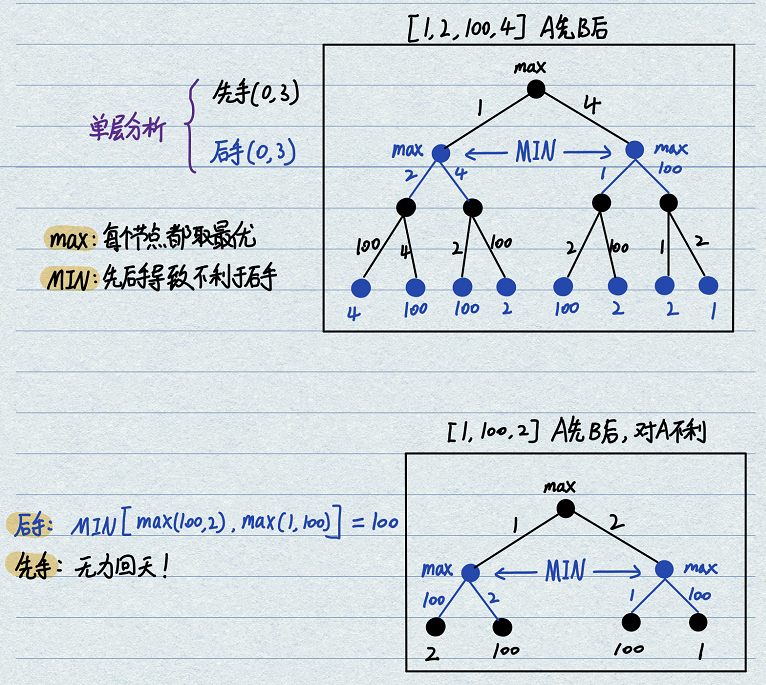 [1,2,100,4] A先B后
单层分析
先手(0,3)
后手(0,3)
max:每个节点都取最优
MIN:先后手导致不利于后手
max
1 4
max MIN max
2 4 1 100
100 4 2 100 2 100 1 2
4 100 100 2 100 2 2 1
[1,100,2] A先B后,对A不利
后手: MIN[max(100,2),max(1,100)]=100
先手:无力回天!
max
1 2
max MIN max
100 2 1 100
2 100 100 1